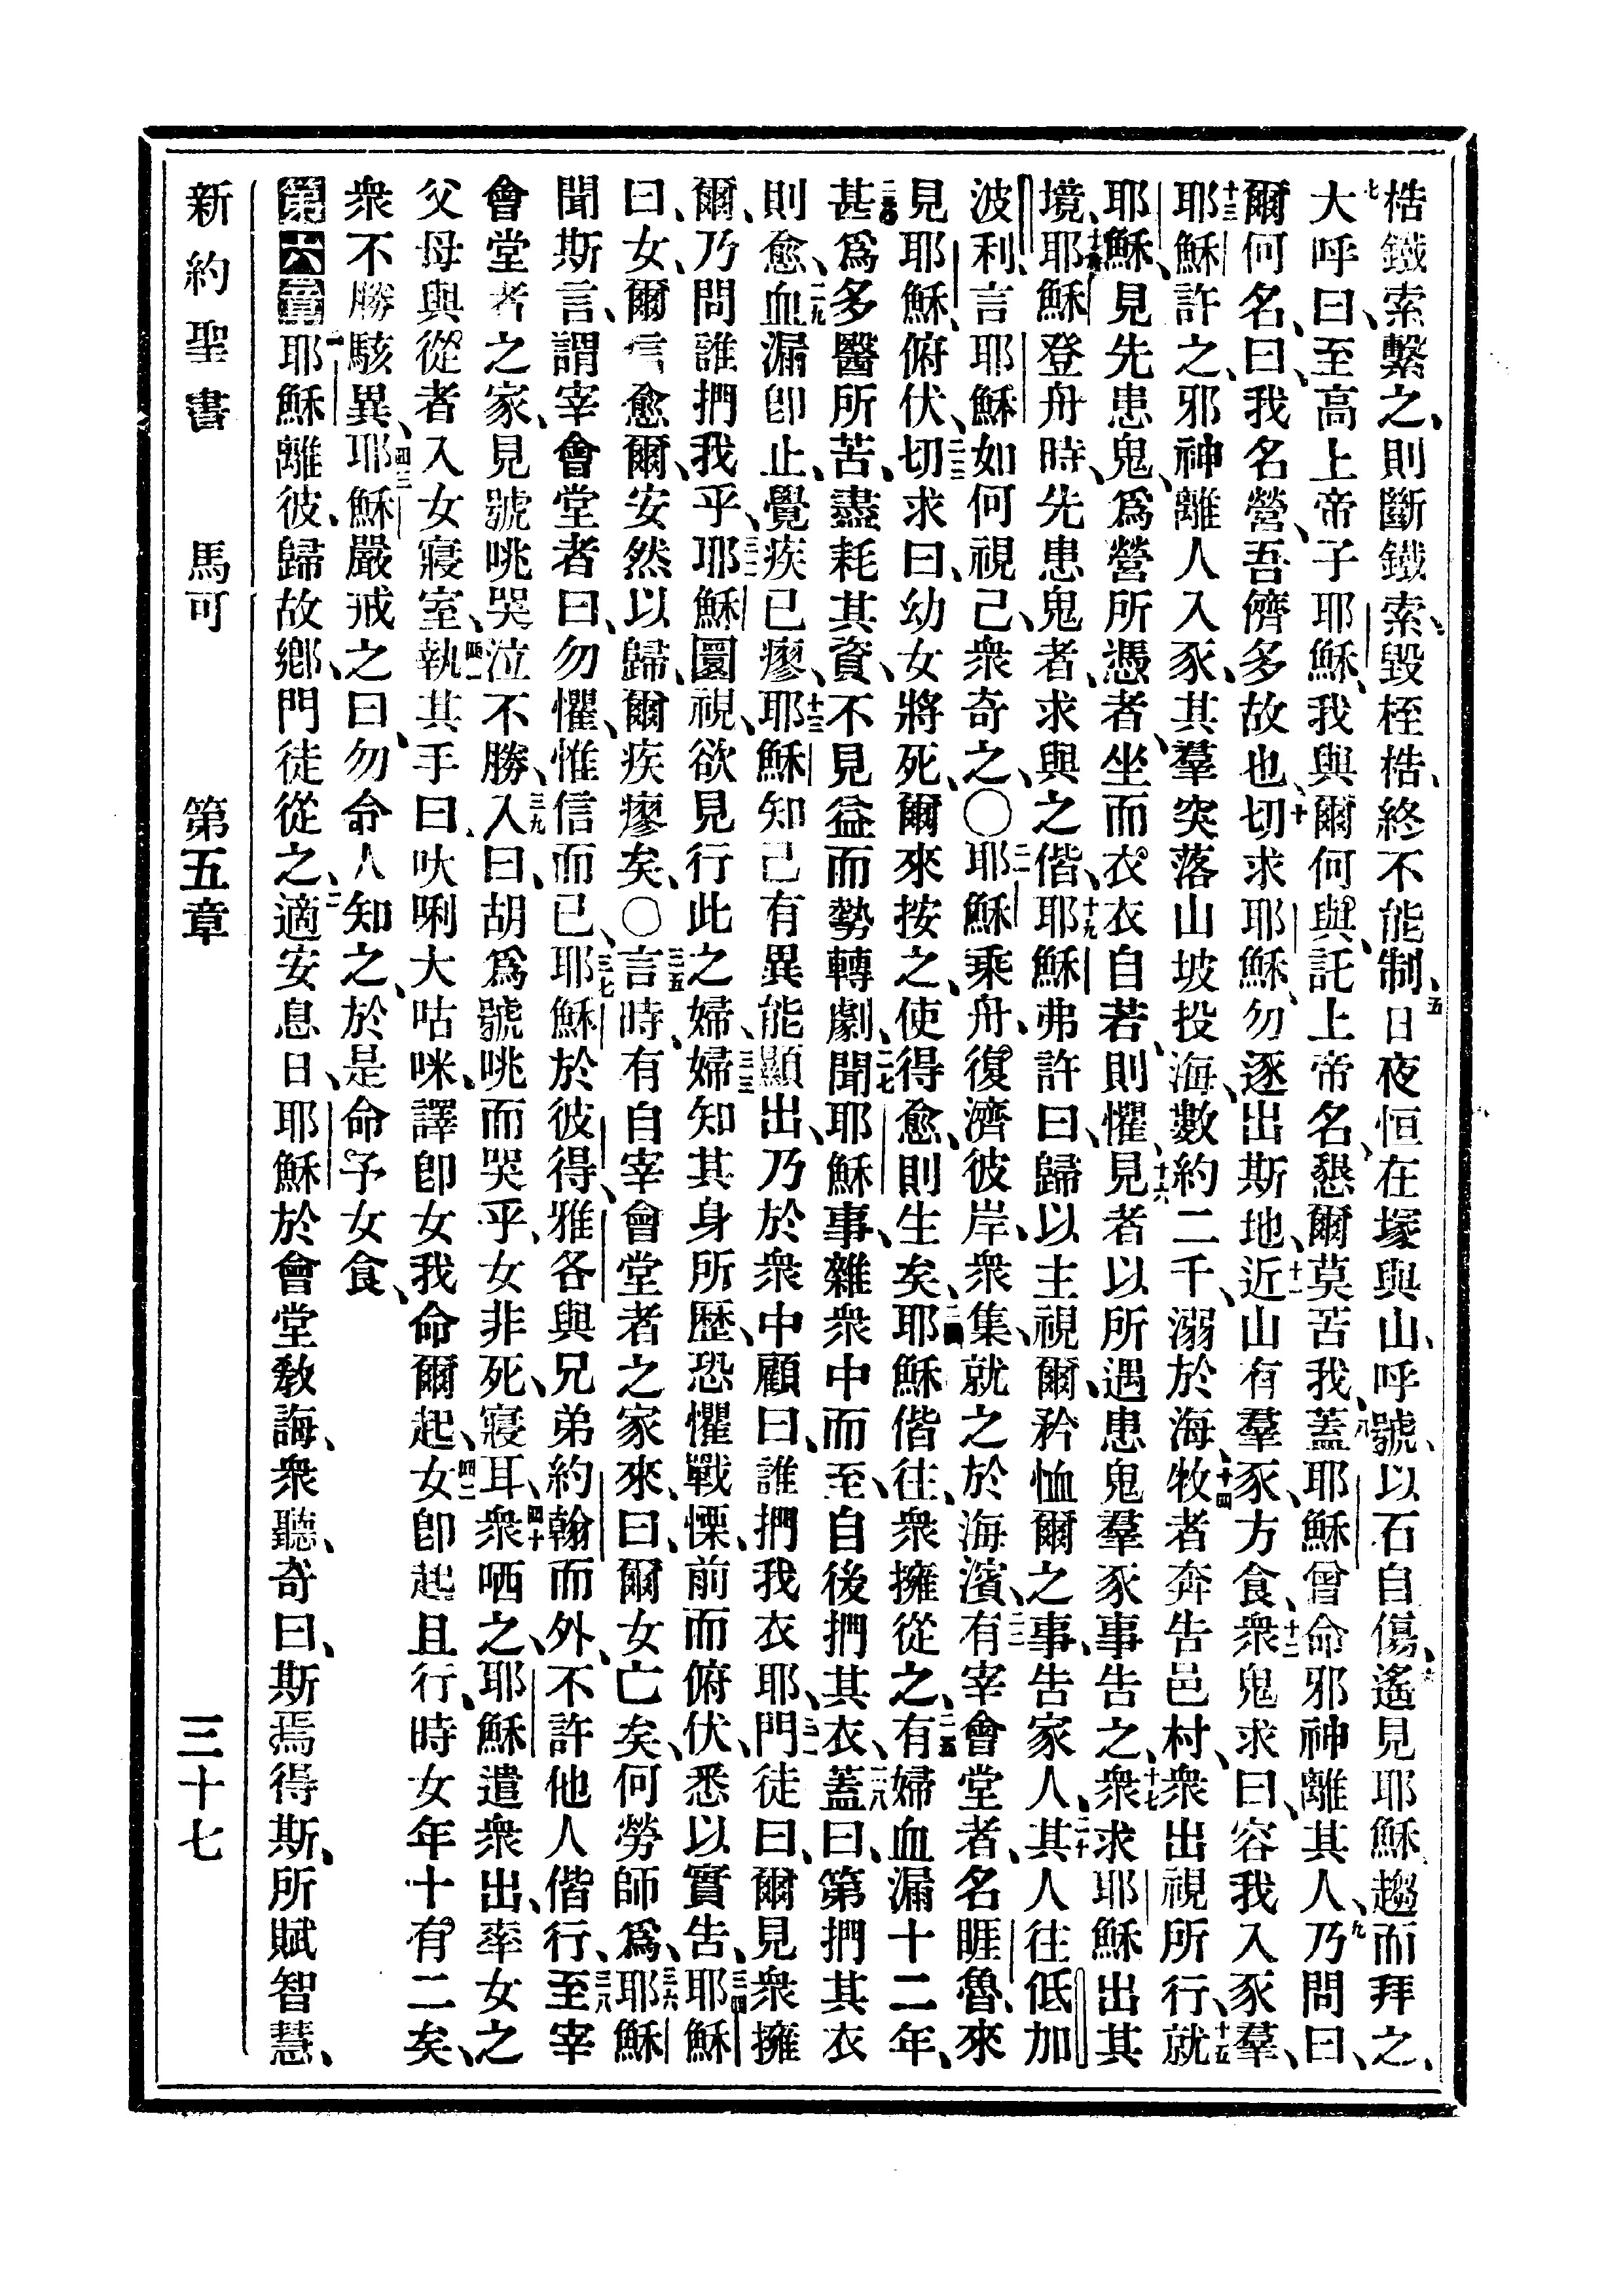 梏鐵索繫之、則斷鐵索、毀桎梏、終不能制、五日夜恒在塚與山、呼號、以石自傷、六遙見耶穌、趨而拜之、
七大呼曰、至高上帝子耶穌、我與爾何與、託上帝名、懇爾莫苦我、八蓋耶穌曾命邪神離其人、九乃問曰、
爾何名、曰、我名營、吾儕多故也、十切求耶穌、勿逐出斯地、十一近山有羣豕、方食、十二衆鬼求曰、容我入豕羣、
十三耶穌許之、邪神離人入豕、其羣突落山坡投海、數約二千、溺於海、十四牧者奔告邑村、衆出視所行、十五就
耶穌、見先患鬼、爲營所憑者、坐而衣衣自若、則懼、十六見者以所遇患鬼羣豕事告之、十七衆求耶穌出其
境、十八耶穌登舟時、先患鬼者、求與之偕、十九耶穌弗許、曰、歸以主視爾、矜恤爾之事、告家人、二十其人往低加
波利、言耶穌如何視己、衆奇之、〇二一耶穌乘舟、復濟彼岸、衆集、就之於海濱、二二有宰會堂者、名睚魯、來
見耶穌、俯伏、二三切求曰、幼女將死、爾來按之、使得愈、則生矣、二四耶穌偕往、衆擁從之、二五有婦血漏十二年、
二六甚爲多醫所苦、盡耗其資、不見益而勢轉劇、二七聞耶穌事、雜衆中而至、自後捫其衣、二八蓋曰、第捫其衣
則愈、二九血漏卽止、覺疾已瘳、三十耶穌知己有異能顯出、乃於衆中顧曰、誰捫我衣耶、三一門徒曰、爾見衆擁
爾、乃問誰捫我乎、三二耶穌圜視、欲見行此之婦、三三婦知其身所歷、恐懼戰慄、前而俯伏、悉以實告、三四耶穌
曰、女、爾信愈爾、安然以歸、爾疾瘳矣、〇三五言時、有自宰會堂者之家來、曰、爾女亡矣、何勞師爲、三六耶穌
聞斯言、謂宰會堂者曰、勿懼、惟信而已、三七耶穌於彼得、雅各與兄弟約翰而外、不許他人偕行、三八至宰
會堂者之家、見號咷哭泣不勝、三九入曰、胡爲號咷而哭乎、女非死、寢耳、四十衆哂之、耶穌遣衆出、率女之
父母與從者、入女寢室、四一執其手曰、呔唎大咕咪、譯卽女我命爾起、四二女卽起且行、時女年十有二矣、
衆不勝駭異、四三耶穌嚴戒之曰、勿命人知之、於是命予女食、
第六章一耶穌離彼、歸故鄉、門徒從之、二適安息日、耶穌於會堂敎誨、衆聽、奇曰、斯焉得斯、所賦智慧、
新約聖書 馬可 第五章 三十七